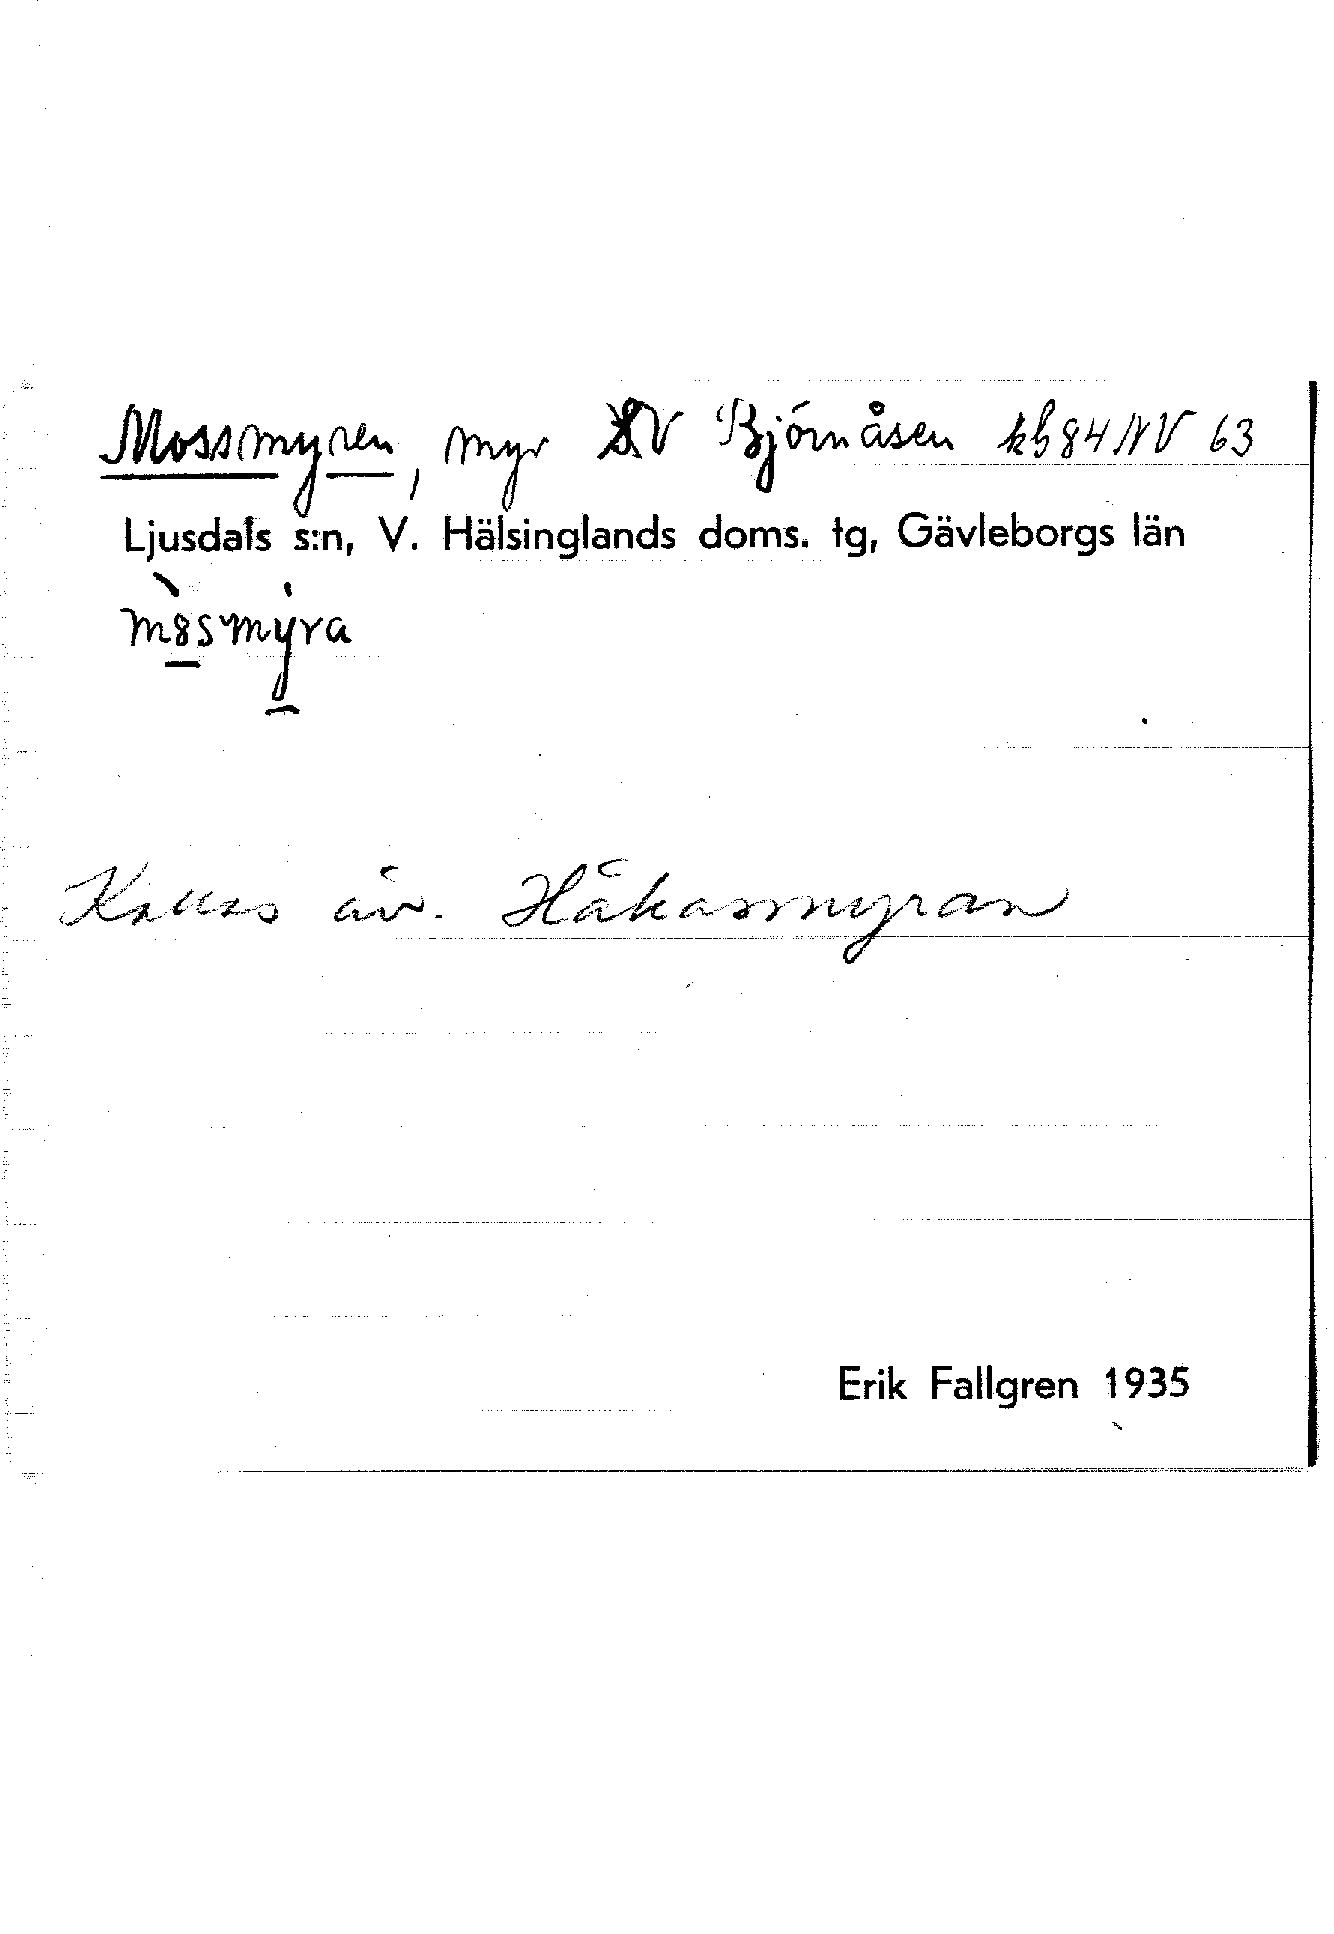 Mossmyren, myr SV Björnåsen kb 84 NV 63
Ljusdals s:n, V. Hälsinglands doms. tg, Gävleborgs län
Kallas äv. Håkasmyran
Erik Fallgren 1935